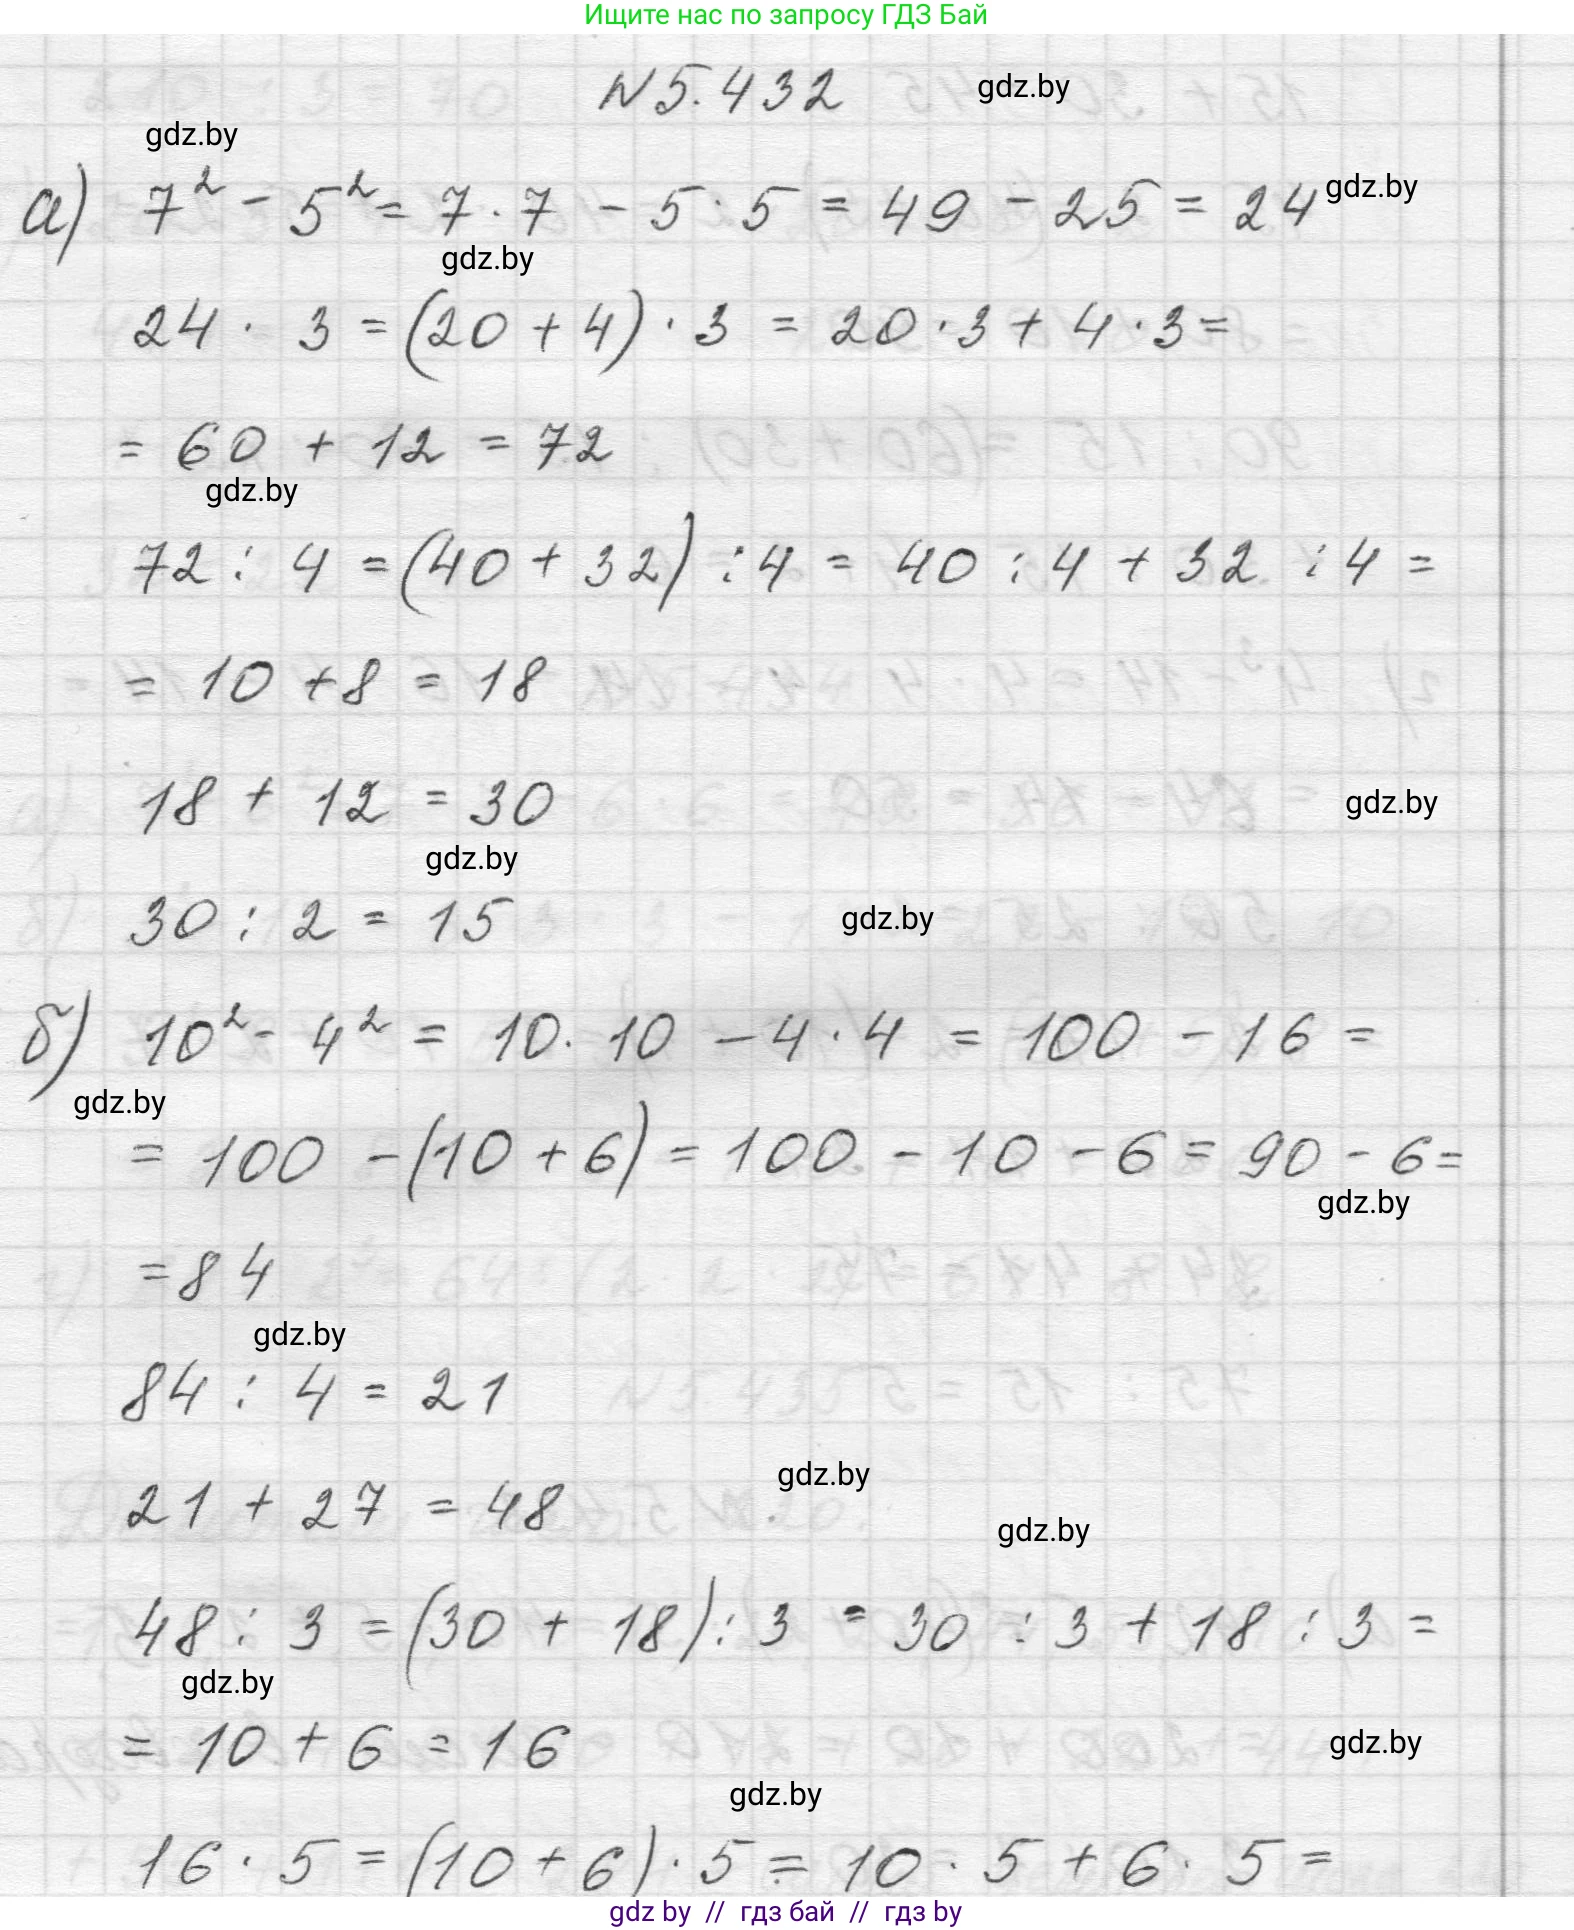 Ищите нас по запросу ГДЗ Бай
№5.432 gdz.by
gdz.by
а) 7² - 5² = 7 · 7 - 5 · 5 = 49 - 25 = 24 gdz.by
gdz.by
24 · 3 = (20 + 4) · 3 = 20 · 3 + 4 · 3 =
= 60 + 12 = 72
gdz.by
72 : 4 = (40 + 32) : 4 = 40 : 4 + 32 : 4 =
= 10 + 8 = 18
18 + 12 = 30 gdz.by
gdz.by
30 : 2 = 15 gdz.by
б) 10² - 4² = 10 · 10 - 4 · 4 = 100 - 16 =
gdz.by
= 100 - (10 + 6) = 100 - 10 - 6 = 90 - 6 =
gdz.by
= 84
gdz.by
84 : 4 = 21
gdz.by
21 + 27 = 48
gdz.by
48 : 3 = (30 + 18) : 3 = 30 : 3 + 18 : 3 =
gdz.by
= 10 + 6 = 16 gdz.by
gdz.by
16 · 5 = (10 + 6) · 5 = 10 · 5 + 6 · 5 =
gdz by // гдз бай // гдз by